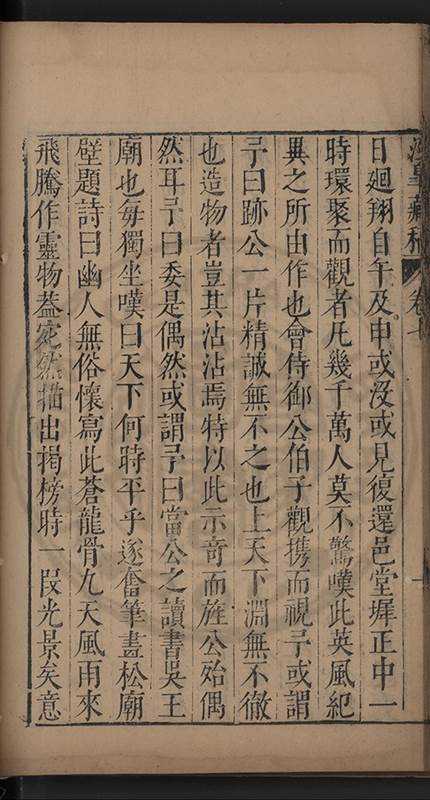 卷七
日廻翔自午及申或没或見復還邑堂墀正中一
時環聚而觀者凡幾千萬人莫不驚嘆此英風紀
異之所由作也會侍御公伯子觀携而視予或謂
予曰跡公一片精誠無不之也上天下淵無不徹
也造物者豈其沾沾焉特以此示竒而旌公殆偶
然耳予曰委是偶然或謂予曰當公之讀書吳王
廟也每獨坐嘆曰天下何時平乎遂奮筆畫松廟
壁題詩曰幽人無俗懷寫此蒼龍骨九天風雨來
飛騰作靈物葢宛然描出揭榜時一段光景矣意